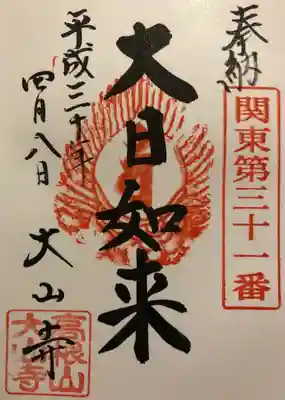 奉納
関東第三十一番
大日如来
平成三十年
四月八日
大山寺
高根山
大山寺